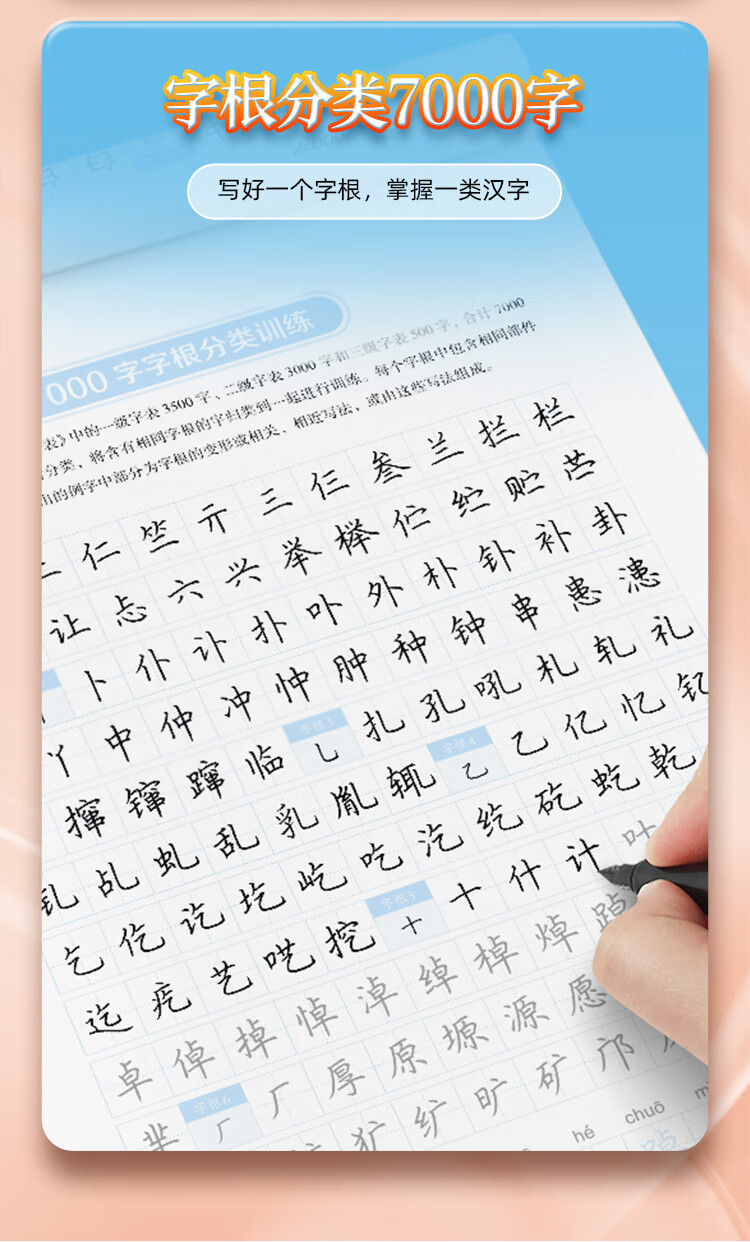 字根分类7000字
写好一个字根，掌握一类汉字
000 字字根分类训练
表》中的一级字表 3500 字、二级字表 3000 字和三级字表 500 字，合计 7000
分类，将含有相同字根的字归类到一起进行训练。每个字根中包含相同部件
的例字中部分为字根的变形或相关、相近写法，或由这些写法组成。
仁 竺 亓 三 仨 叁 兰 拦 栏
让 忐 六 兴 举 榉 伫 纻 贮 苎
卜 仆 讣 扑 卟 外 朴 钋 补 卦
丫 中 仲 冲 忡 肿 种 钟 串 患 漶
撺 镩 蹿 临 字根3 乚 扎 孔 吼 札 轧 礼
钆 乩 虬 乱 乳 胤 辄 字根4 乙 乙 亿 忆 钇
乞 仡 讫 圪 屹 吃 汔 纥 矻 虼 乾
迄 疙 艺 呓 挖 字根5 十 十 什 计 叶
卓 倬 掉 悼 淖 绰 棹 焯 踔
芈 字根6 厂 厂 厚 原 塬 源 愿
犷 纩 旷 矿 邝
hé chuō